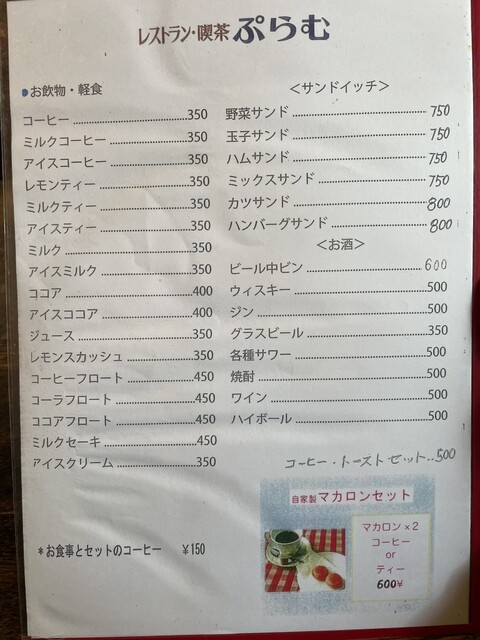 レストラン・喫茶 ぷらむ
●お飲物・軽食
コーヒー......350
ミルクコーヒー......350
アイスコーヒー......350
レモンティー......350
ミルクティー......350
アイスティー......350
ミルク......350
アイスミルク......350
ココア......400
アイスココア......400
ジュース......350
レモンスカッシュ......350
コーヒーフロート......450
コーラフロート......450
ココアフロート......450
ミルクセーキ......450
アイスクリーム......350
*お食事とセットのコーヒー ¥150
<サンドイッチ>
野菜サンド......750
玉子サンド......750
ハムサンド......750
ミックスサンド......750
カツサンド......800
ハンバーグサンド......800
<お酒>
ビール中ビン......600
ウィスキー......500
ジン......500
グラスビール......350
各種サワー......500
焼酎......500
ワイン......500
ハイボール......500
コーヒー・トーストセット..500
自家製マカロンセット
マカロン×2
コーヒー
or
ティー
600¥